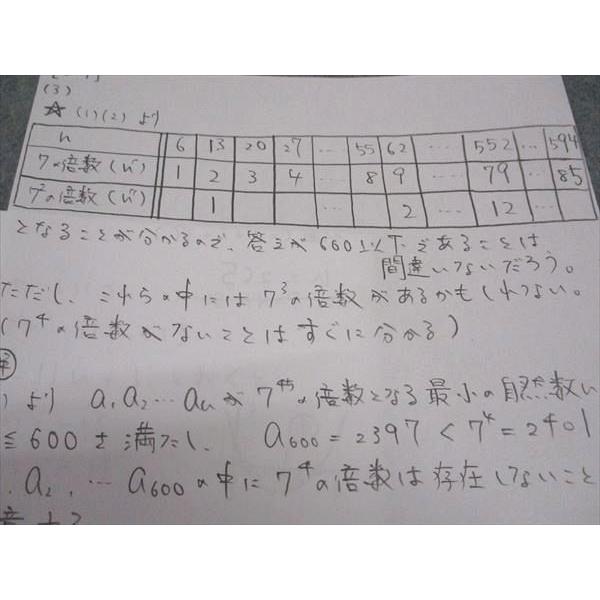 (3)
☆ (1)(2) より
n 6 13 20 27 … 55 62 … 552 … 594
7の倍数(い) 1 2 3 4 … 8 9 … 79 … 85
7²の倍数(い) 1 … 2 … 12 …
となることが分かるので、答えが600以下であることは、
間違いないだろう。
ただし、これらの中には7³の倍数があるかもしれない。
(7⁴の倍数がないことはすぐに分かる)
より a₁a₂…aₙが 7⁹⁵の倍数となる最小の自然数い
≦600を満たし、 a₆₀₀=2397<7⁴=2401
a₂, … a₆₀₀の中に7⁴の倍数は存在しないこと